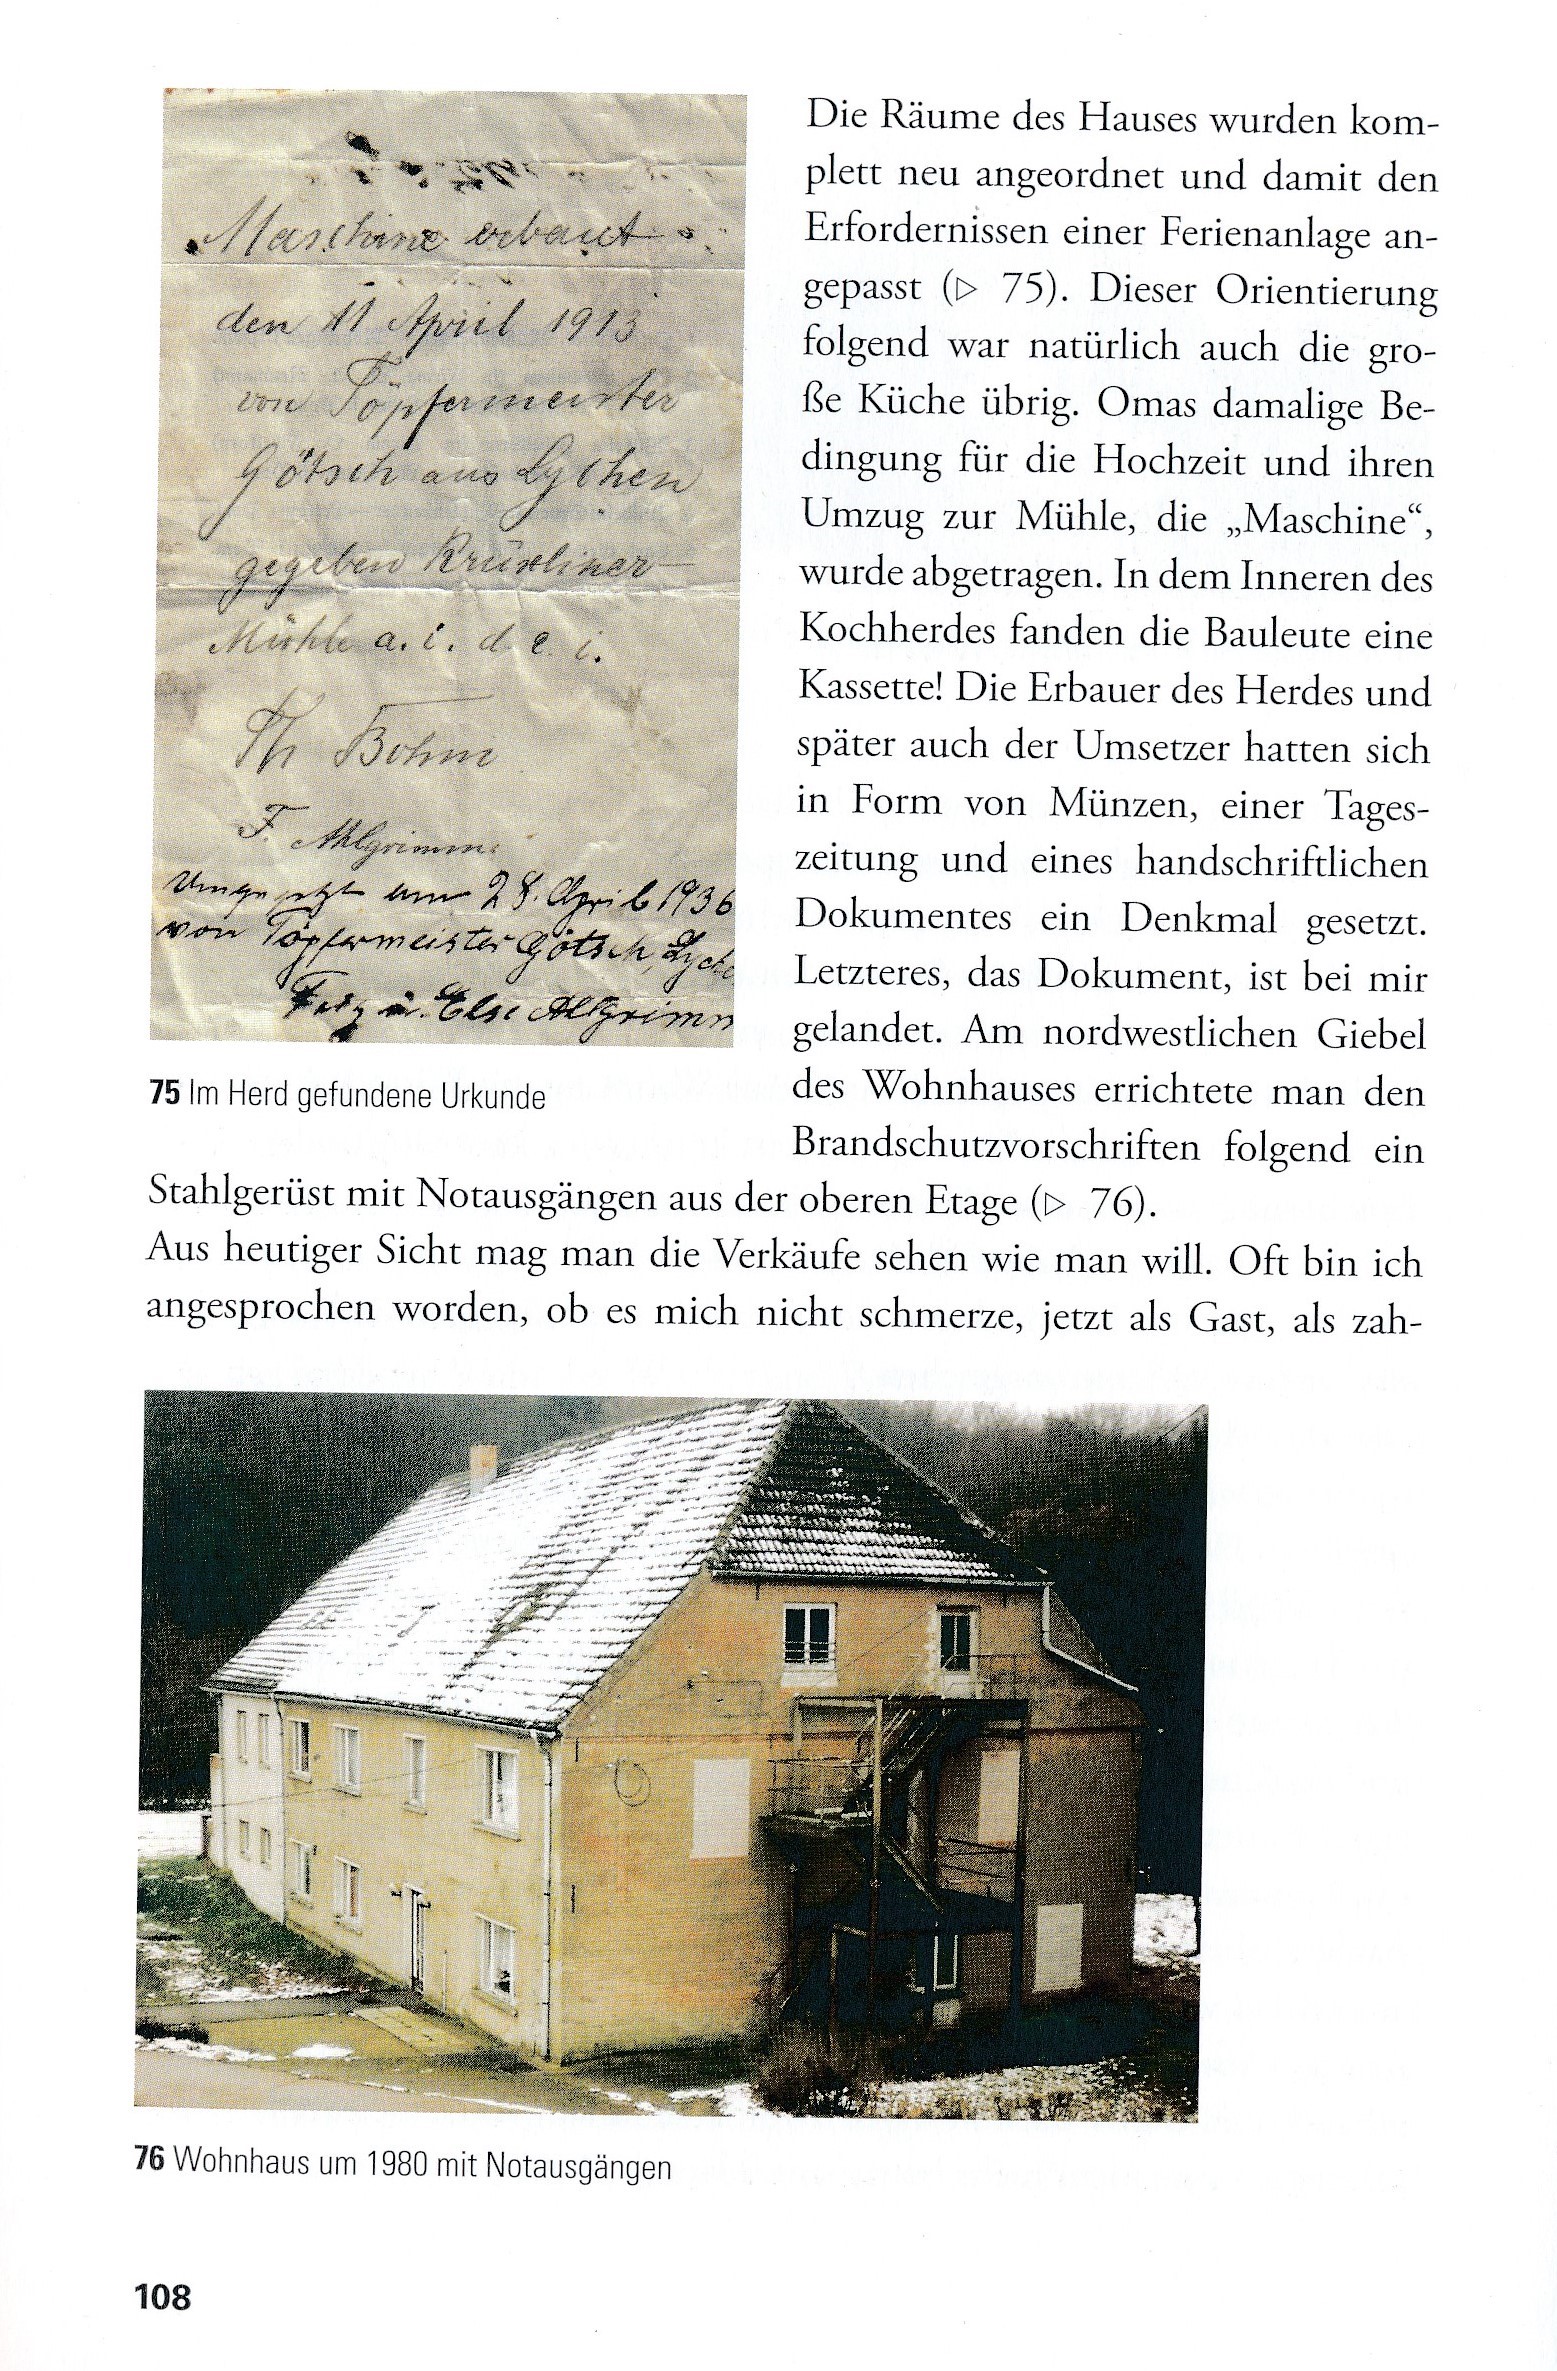 Maschine erbaut
den 11 April 1913
von Töpfermeister
Götsch aus Lychen
gegeben Krüseliner
Mühle a. i. d. e. i.
Th Bohm
F. Ahlgrimm
Umgesetzt am 28. April 1936
von Töpfermeister Götsch, Lyche
Fritz u. Else Ahlgrimm
75 Im Herd gefundene Urkunde
Die Räume des Hauses wurden kom-
plett neu angeordnet und damit den
Erfordernissen einer Ferienanlage an-
gepasst (▷ 75). Dieser Orientierung
folgend war natürlich auch die gro-
ße Küche übrig. Omas damalige Be-
dingung für die Hochzeit und ihren
Umzug zur Mühle, die „Maschine“,
wurde abgetragen. In dem Inneren des
Kochherdes fanden die Bauleute eine
Kassette! Die Erbauer des Herdes und
später auch der Umsetzer hatten sich
in Form von Münzen, einer Tages-
zeitung und eines handschriftlichen
Dokumentes ein Denkmal gesetzt.
Letzteres, das Dokument, ist bei mir
gelandet. Am nordwestlichen Giebel
des Wohnhauses errichtete man den
Brandschutzvorschriften folgend ein
Stahlgerüst mit Notausgängen aus der oberen Etage (▷ 76).
Aus heutiger Sicht mag man die Verkäufe sehen wie man will. Oft bin ich
angesprochen worden, ob es mich nicht schmerze, jetzt als Gast, als zah-
76 Wohnhaus um 1980 mit Notausgängen
108